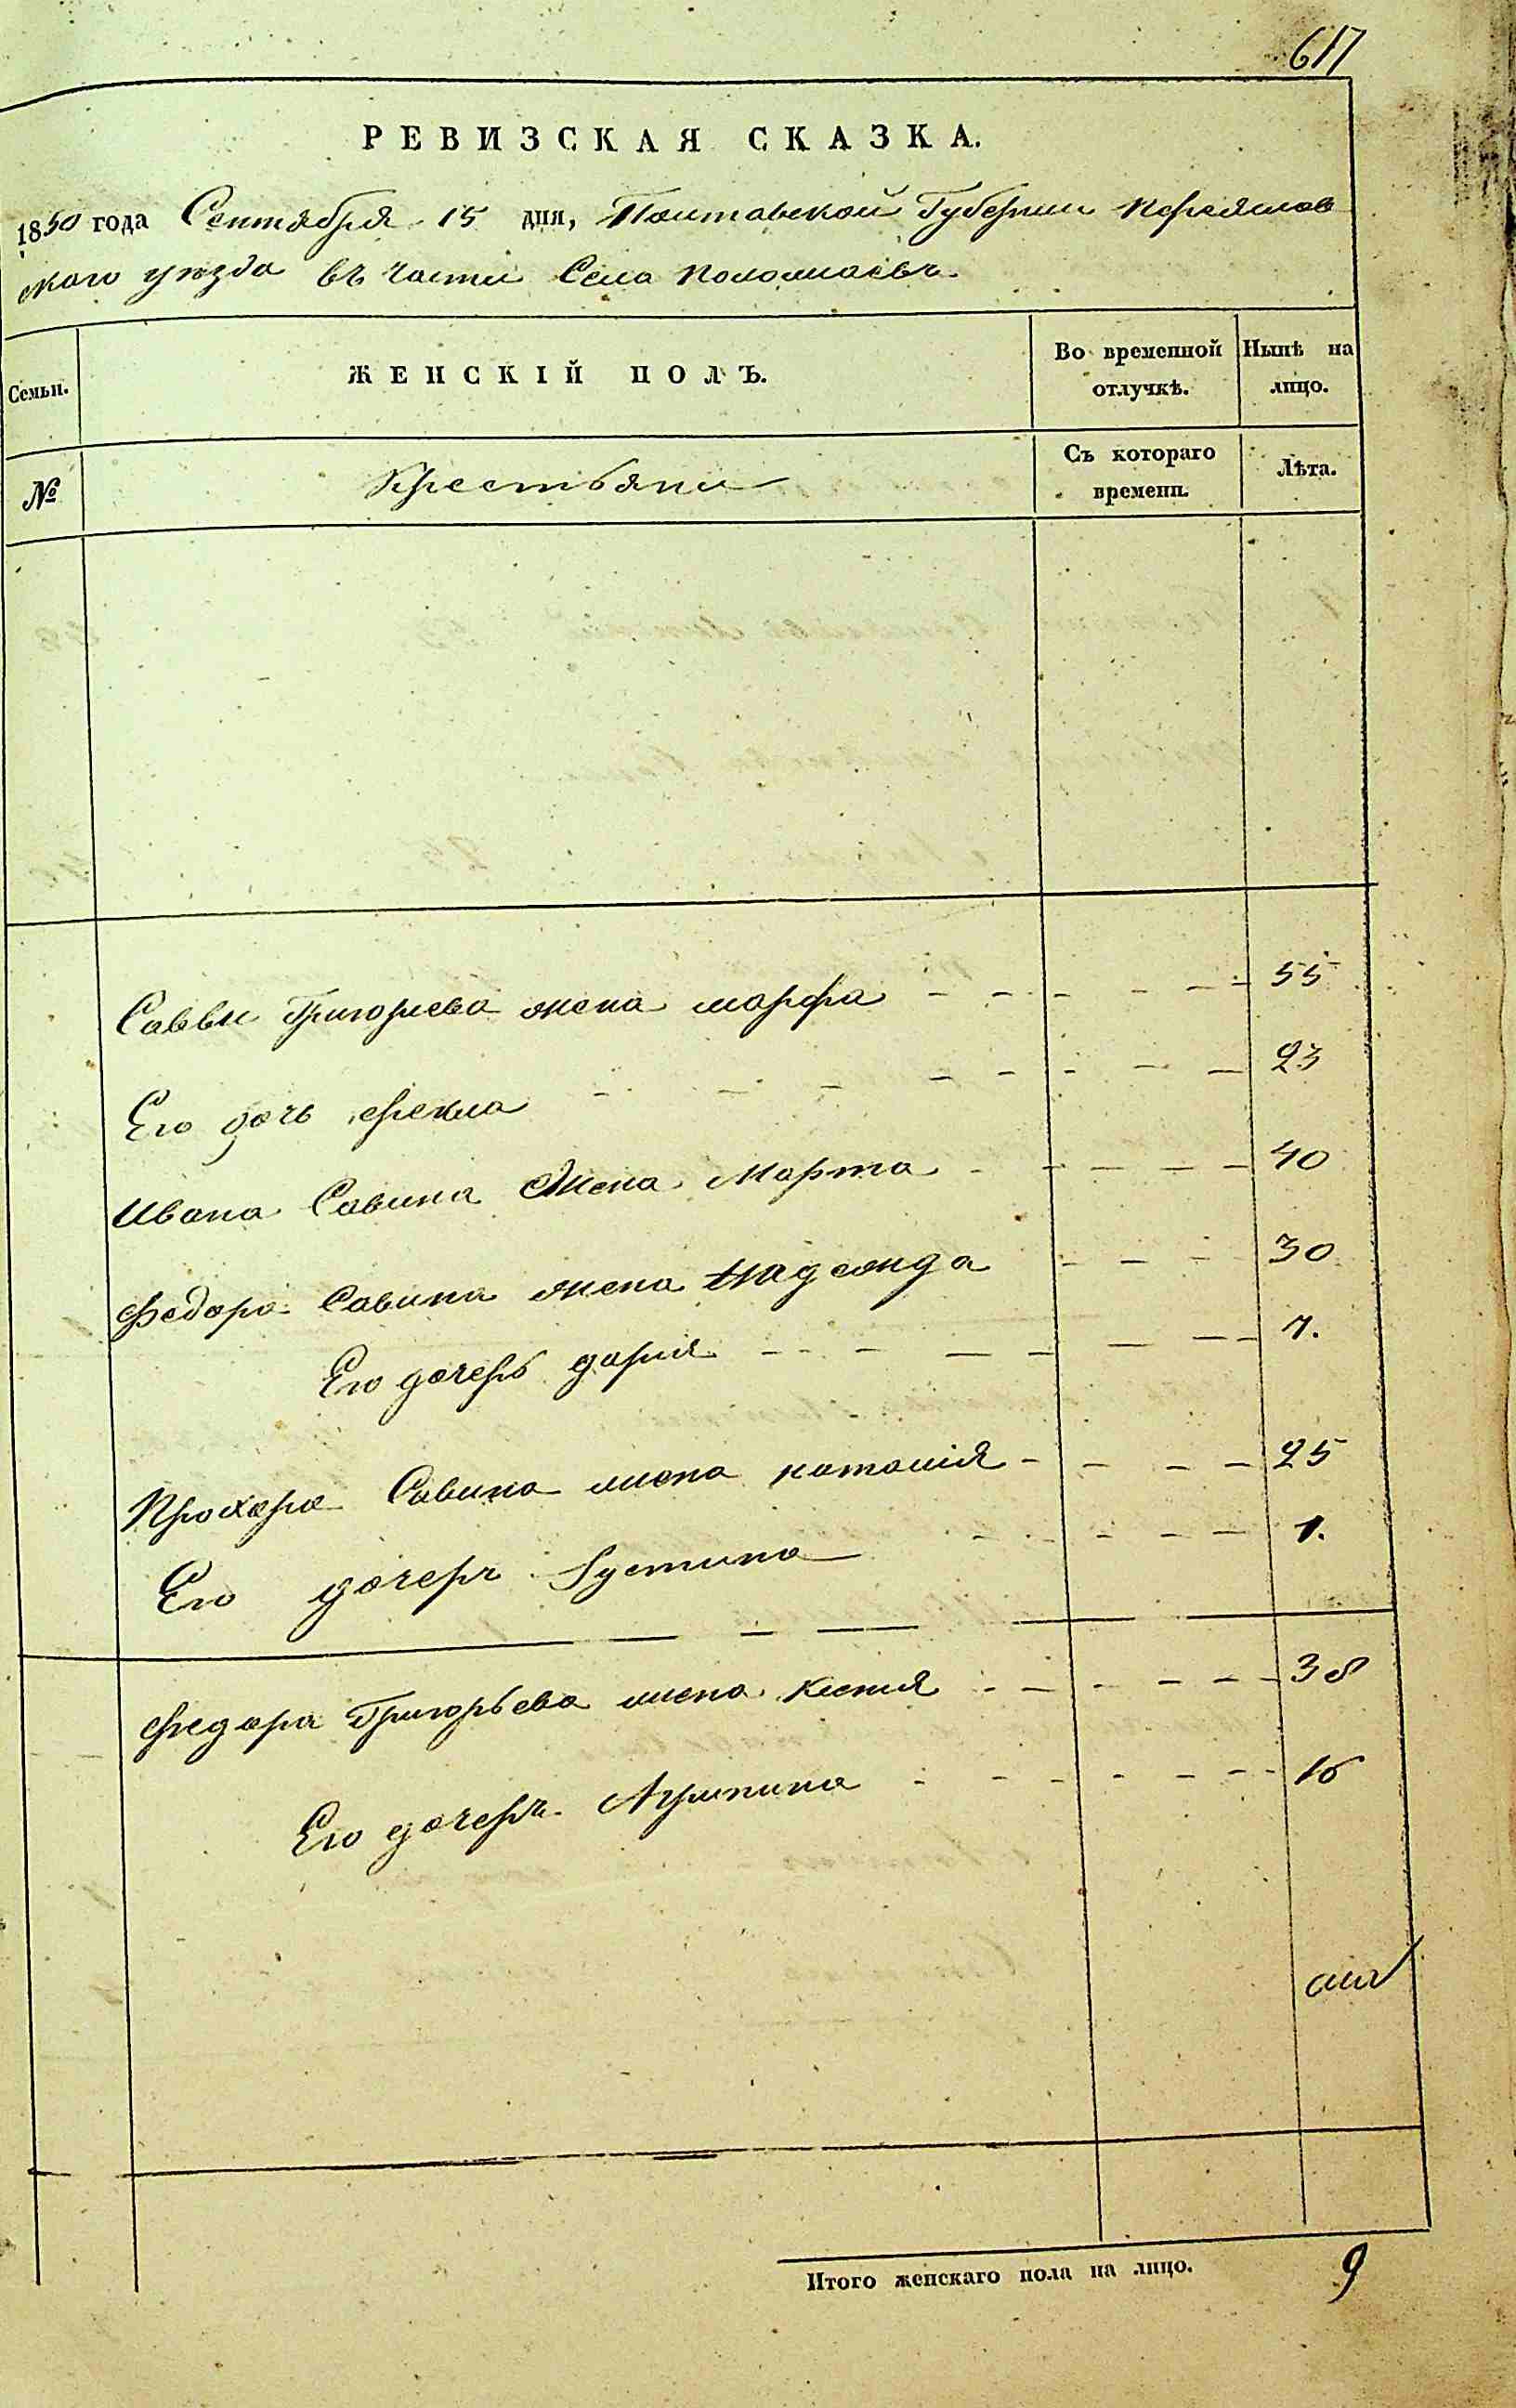 617
РЕВИЗСКАЯ СКАЗКА.
1850 года Сентября 15 дня, Полтавской Губернии Переяслов
ского уезда въ части Села
Семьи. ЖЕНСКІЙ ПОЛЪ. Во временной отлучкѣ. Нынѣ на лицо.
№ Крестьяни Съ котораго времени. Лѣта.
Саввы Григориева жена марфа 55
Его дочь фекла 23
Ивана Савина Жена Марта 40
Федора Савина жена Надежда 30
Его дочерь дария 7.
Прохора Савина жена наталия 25
Его дочеръ Густина 1.
Федора Григорьева жена Ксения 38
Его дочеръ Агрипина 16
Итого женскаго пола на лицо. 9